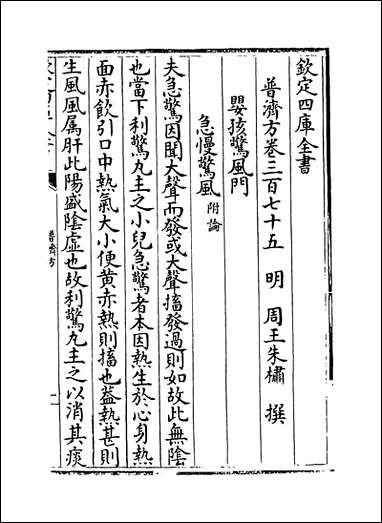 欽定四庫全書
普濟方卷三百七十五　明　周王朱橚　撰
嬰孩驚風門
急慢驚風附論
夫急驚因聞大聲而發或大聲搐發過則如故此無陰
也當下利驚丸主之小兒急驚者本因熱生於心身熱
面赤飲引口中熱氣大小便黄赤熱則搐也葢熱甚則
生風風属肝此陽盛陰虚也故利驚丸主之以消其痰
普濟方